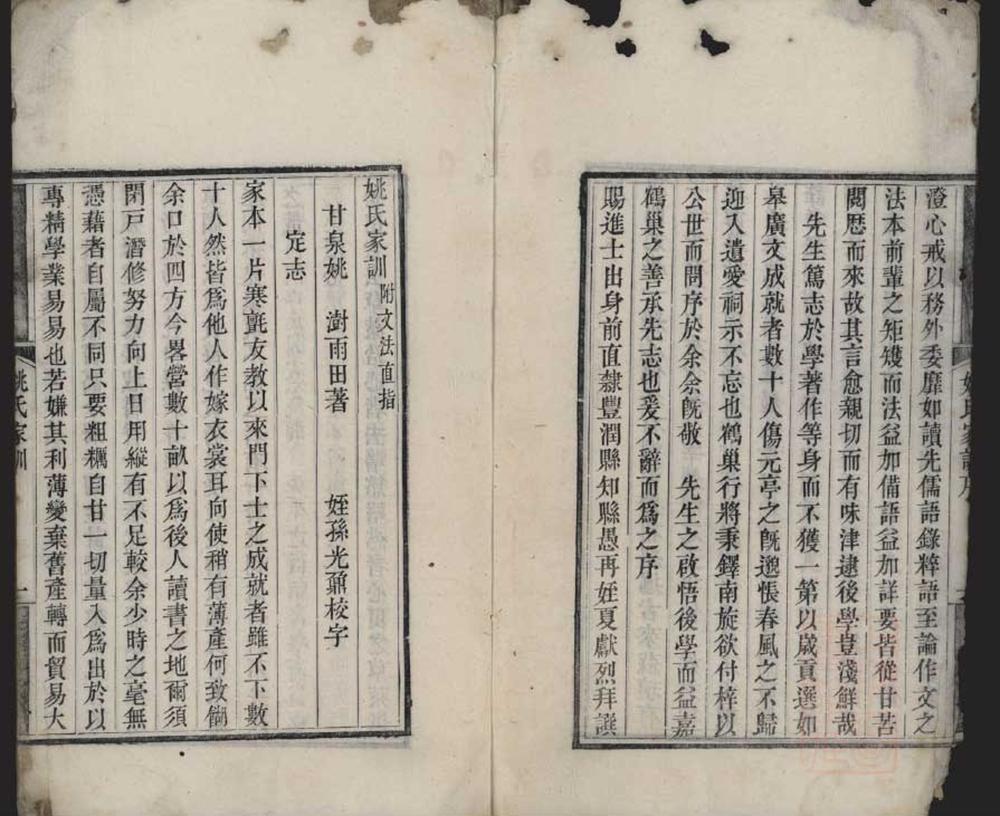 澄心戒以務外委靡如讀先儒語錄粹語至論作文之
法本前輩之矩矱而法益加備語益加詳要皆從甘苦
閱歷而來故其言愈親切而有味津逮後學豈淺鮮哉
先生篤志於學著作等身而不獲一第以歲貢選如
皋廣文成就者數十人傷元亭之旣邈悵春風之不歸
迎入遺愛祠示不忘也鶴巢行將秉鐸南旋欲付梓以
公世而問序於余余旣敬　先生之啟悟後學而益嘉
鶴巢之善承先志也爰不辭而爲之序
賜進士出身前直隸豐潤縣知縣愚再姪夏獻烈拜譔
姚氏家訓序
姚氏家訓附文法直指
甘泉姚　澍雨田著　姪孫光鼐校字
定志
家本一片寒氈友教以來門下士之成就者雖不下數
十人然皆爲他人作嫁衣裳耳向使稍有薄產何致餬
余口於四方今畧營數十畝以爲後人讀書之地爾須
閉戸潛修努力向上日用縱有不足較余少時之毫無
憑藉者自屬不同只要粗糲自甘一切量入爲出於以
專精學業易易也若嫌其利薄變棄舊產轉而貿易大
姚氏家訓
一